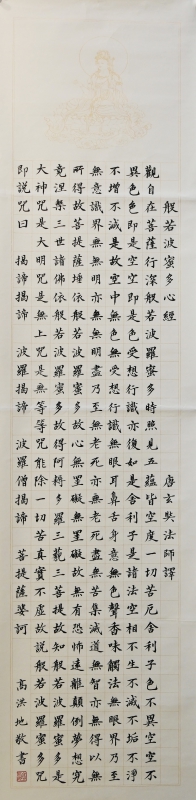 般若波蜜多心經 唐玄奘法師譯
觀自在菩薩行深般若波羅蜜多時照見五蘊皆空度一切苦厄舍利子色不異空空不
異色色即是空空即是色受想行識亦復如是舍利子是諸法空相不生不滅不垢不淨
不增不減是故空中無色無受想行識無眼耳鼻舌身意無色聲香味觸法無眼界乃至
無意識界無無明亦無無明盡乃至無老死亦無老死盡無苦集滅道無智亦無得以無
所得故菩提薩埵依般若波羅蜜多故心無罣礙無罣礙故無有恐怖遠離顛倒夢想究
竟涅槃三世諸佛依般若波羅蜜多故得阿耨多羅三藐三菩提故知般若波羅蜜多是
大神咒是大明咒是無上咒是無等等咒能除一切苦真實不虛故說般若波羅蜜多咒
即說咒曰 揭諦揭諦 波羅揭諦 波羅僧揭諦 菩提薩婆訶 高洪地敬書